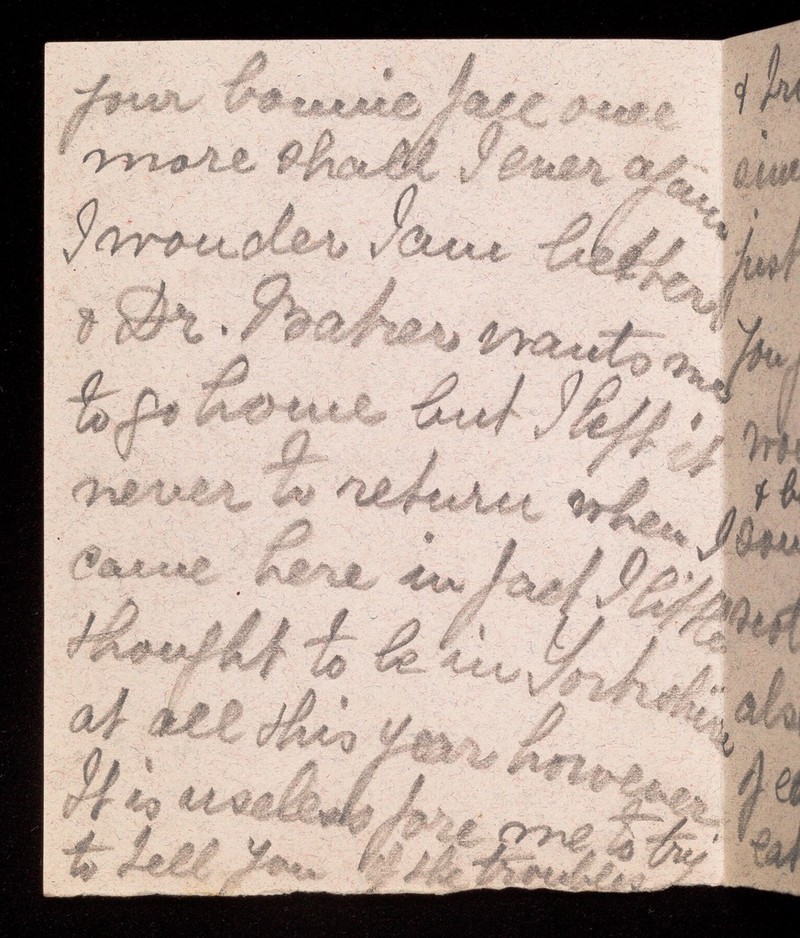 your bonnie face once
more shall I ever again
I wonder I am better
& Dr. Baker wants me
to go home but I left it
never to return when I
came here in fact I little
thought to be in Yorkshire
at all this year however
It is useless fore me to try
to tell you of the troubles
&
just
you
&
not